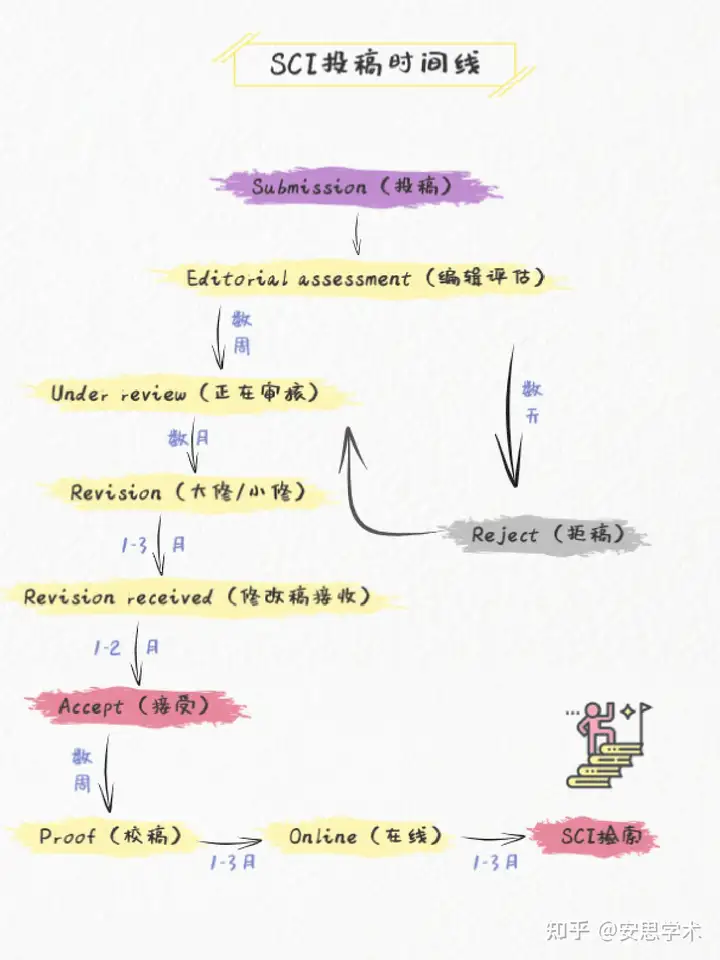 SCI投稿时间线
Submission（投稿）
Editorial assessment（编辑评估）
数
周
数
天
Under review（正在审核）
数月
Revision（大修/小修）
Reject（拒稿）
1-3月
Revision received（修改稿接收）
1-2月
Accept（接受）
数
周
Proof（校稿）
Online（在线）
SCI检索
1-3月
1-3月
知乎 @安思学术